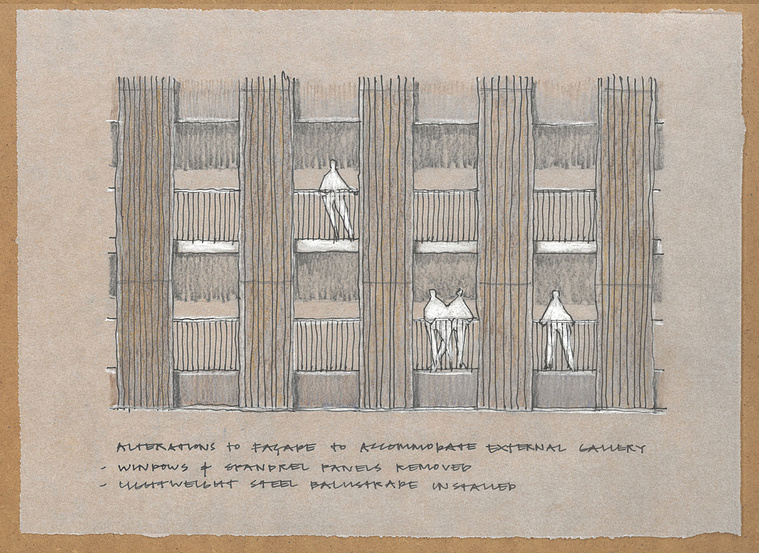 ALTERATIONS TO FAÇADE TO ACCOMMODATE EXTERNAL GALLERY
- WINDOWS & SPANDREL PANELS REMOVED
- LIGHTWEIGHT STEEL BALUSTRADE INSTALLED